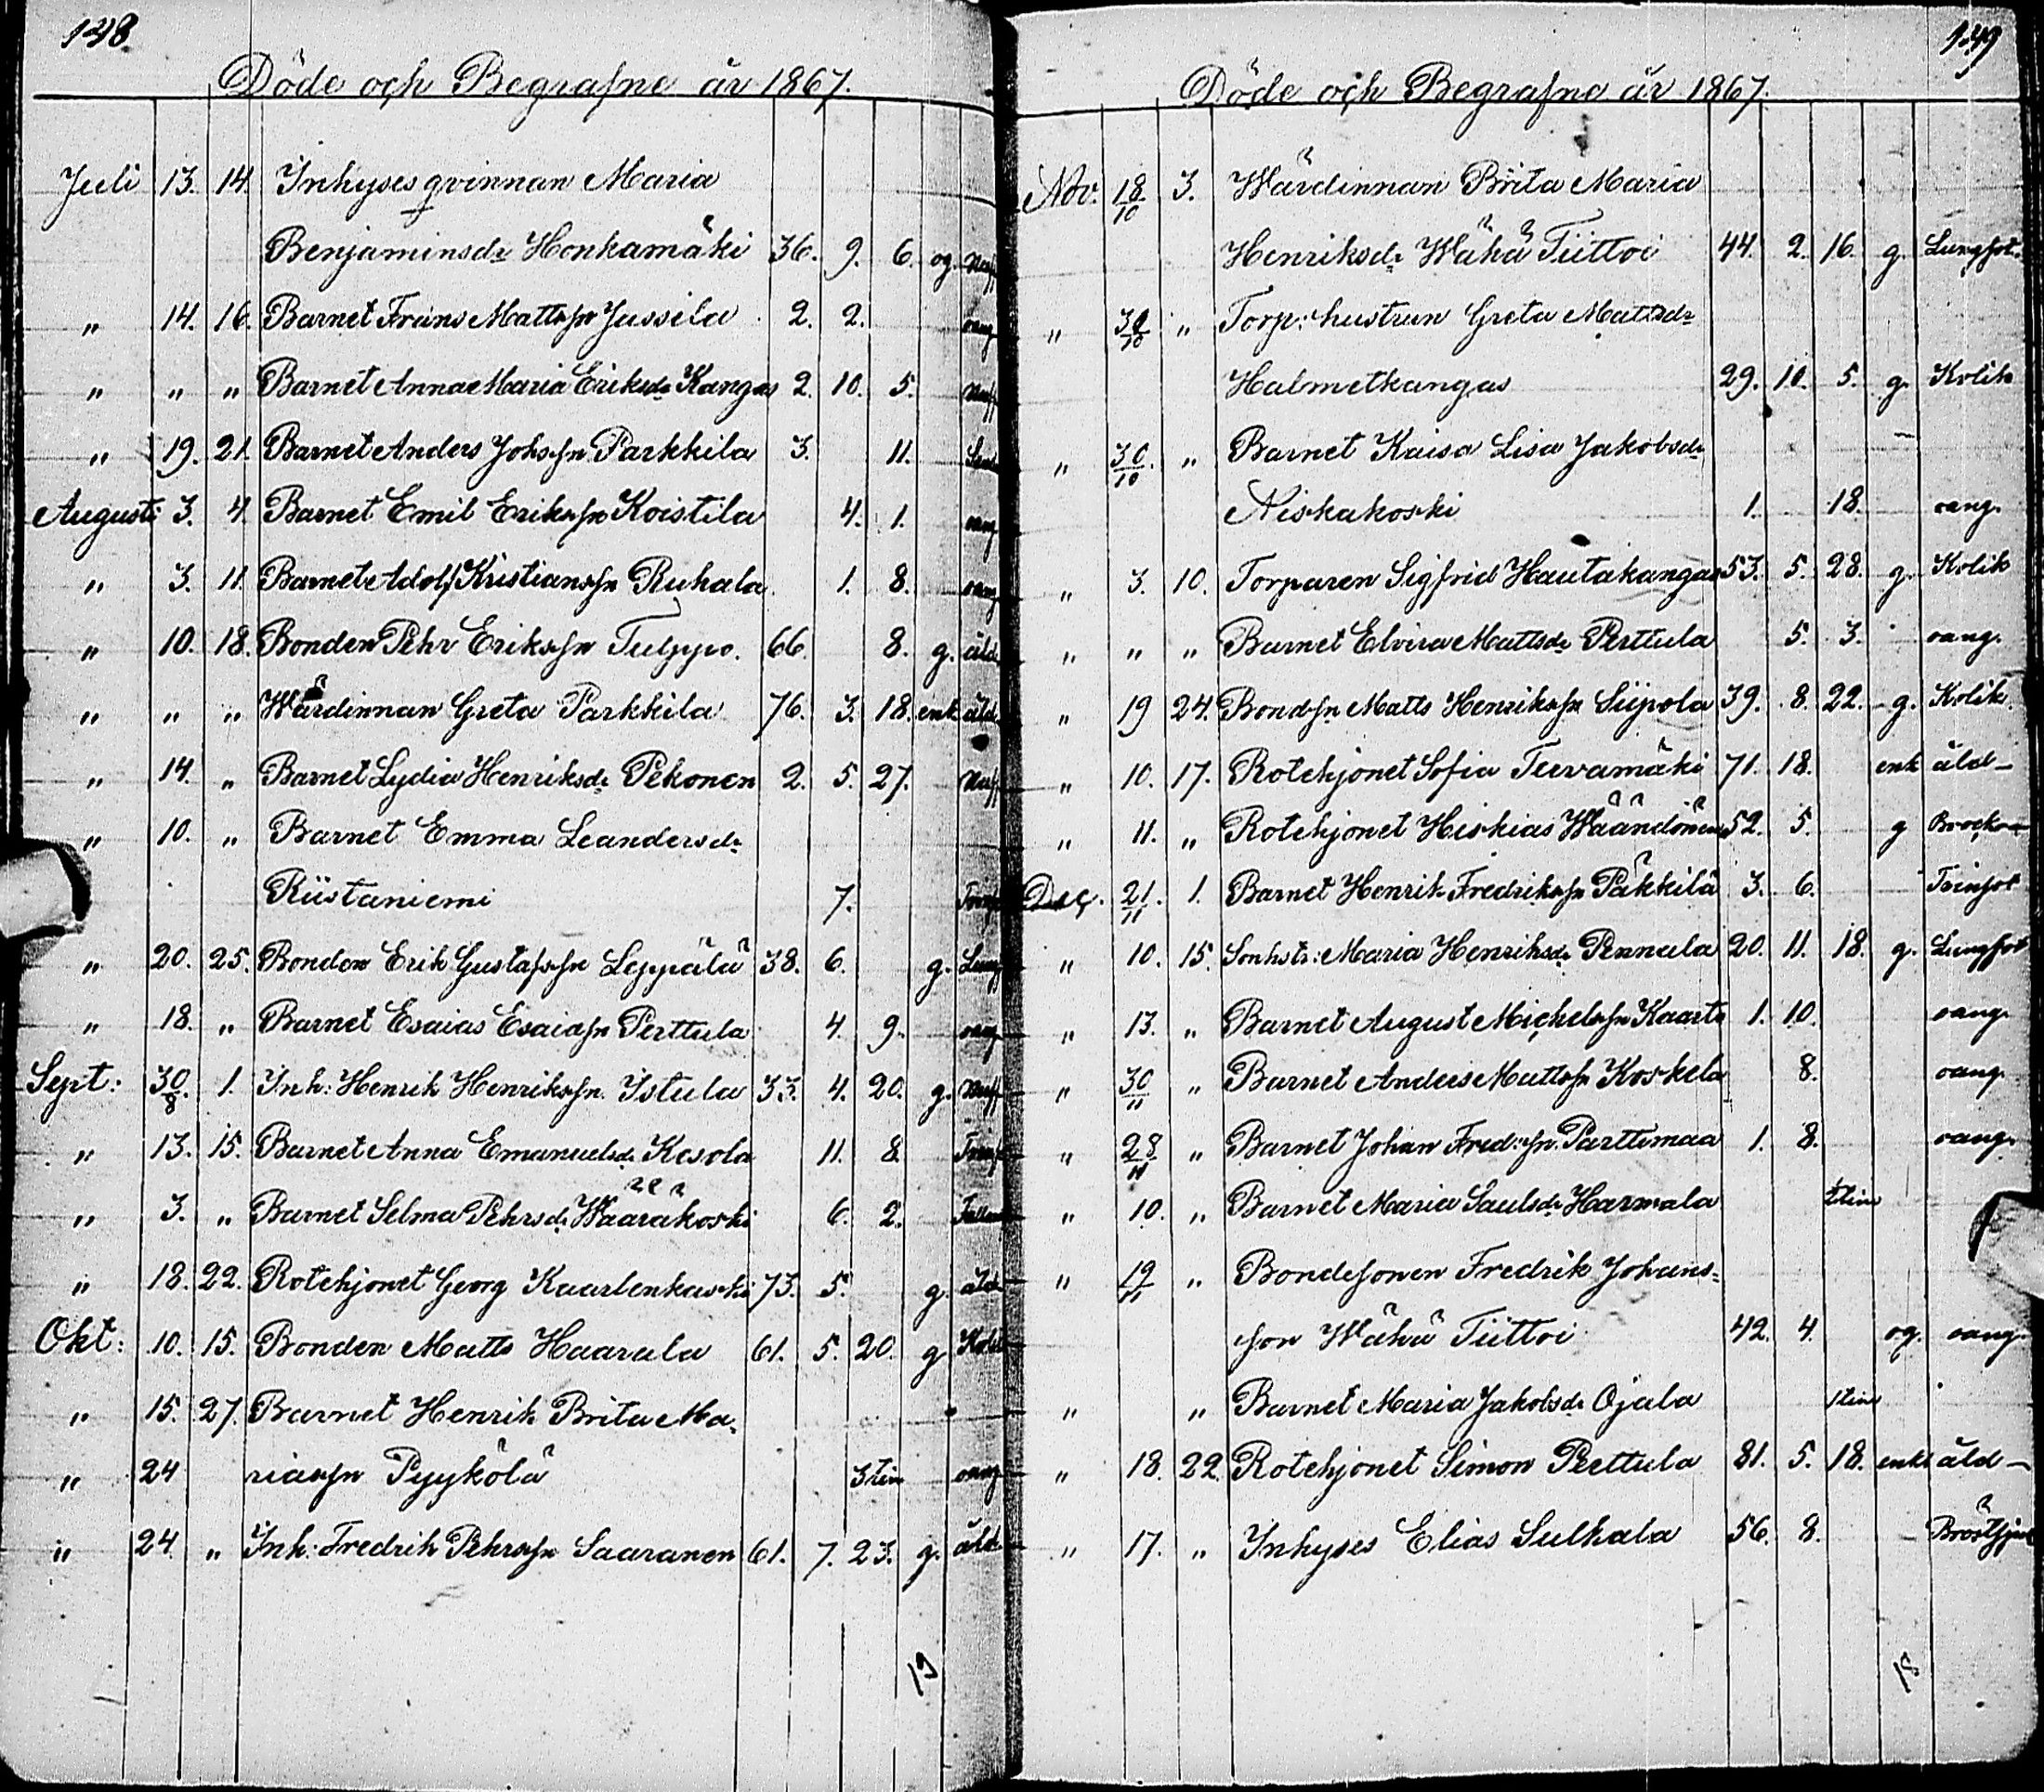 148
Döde och Begrafne år 1867.
Juli 13. 14. Inhyses qvinnan Maria
Benjaminsdr Honkamäki 36. 9. 6. og.
" 14. 16. Barnet Frans Mattssn Jussila 2. 2. oang
" " " Barnet Anna Maria Eriksdr Kangas 2. 10. 5.
" 19. 21. Barnet Anders Johssn Parkkila 3. 11.
Augusti 3. 4. Barnet Emil Erikssn Koistila 4. 1. oang
" 3. 11. Barnet Adolf Kristianssn Ruhala 1. 8. oang
" 10. 18. Bonden Pehr Erikssn Tulppo. 66. 8. g. åld
" " " Wärdinnan Greta Parkkila 76. 3. 18. enk åld
" 14. " Barnet Lydia Henriksdr Pekonen 2. 5. 27.
" 10. " Barnet Emma Leandersdr
Riistaniemi 7.
" 20. 25. Bonden Erik Gustafssn Leppälä 38. 6. g. Lung
" 18. " Barnet Esaias Esaiassn Perttula 4. 9. oang
Sept: 30/8 1. Inh: Henrik Henrikssn Istula 33. 4. 20. g.
" 13. 15. Barnet Anna Emanuelsdr Kesola 11. 8.
" 3. " Barnet Selma Pehrsdr Wääräkoski 6. 2.
" 18. 22. Rotehjonet Georg Kaarlenkaski 73. 5. g. åld
Okt: 10. 15. Bonden Matts Haarala 61. 5. 20. g Kolik
" 15. 27. Barnet Henrik Brita Ma-
" 24 riassn Pyykölä 3 tim oang
" 24. " Inh: Fredrik Pehrssn Saaranen 61. 7. 23. g. åld
19
149
Döde och Begrafne år 1867.
Nov. 18/10 3. Wärdinnan Brita Maria
Henriksdr Wähä Tiittoi 44. 2. 16. g. Lungsot.
" 30/10 " Torp: hustrun Greta Mattsdr
Halmetkangas 29. 10. 5. g. Kolik
" 30/10. " Barnet Kaisa Lisa Jakobsdr
Niskakoski 1. 18. oang.
" 3. 10. Torparen Sigfrid Hautakangas 53. 5. 28. g. Kolik
" " " Barnet Elvira Mattsdr Perttula 5. 3. oang.
" 19 24. Bondsn Matts Henrikssn Siipola 39. 8. 22. g. Kolik
" 10. 17. Rotehjonet Sofia Teevamäki 71. 18. enk åld–
" 11. " Rotehjonet Hiskias Wäänänen 52. 5. g
Dec. 21/11. 1. Barnet Henrik Fredrikssn Päkkilä 3. 6. Tvinsot
" 10. 15. Sonhstr: Maria Henriksdr Pennala 20. 11. 18. g. Lungsot
" 13. " Barnet August Michelssn Kaarto 1. 10. oang.
" 30/11 " Barnet Anders Mattssn Koskela 8. oang.
" 28/11 " Barnet Johan Fred:sn Parttimaa 1. 8. oang.
" 10. " Barnet Maria Saulsdr Harmala tim
" 19/11 " Bondesonen Fredrik Johans-
son Wähä Tiittoi 42. 4. og. oang.
" " Barnet Maria Jakobsdr Ojala 1 tim
" 18. 22. Rotehjonet Simon Perttula 81. 5. 18. enkl åld–
" 17. " Inhyses Elias Sulkala 56. 8.